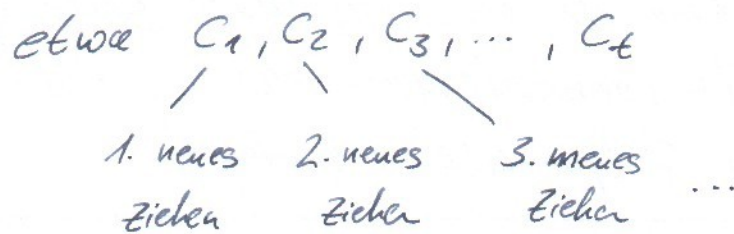 etwa C₁, C₂, C₃, ..., Cₜ
1. neues 2. neues 3. neues
Ziehen Ziehen Ziehen ...